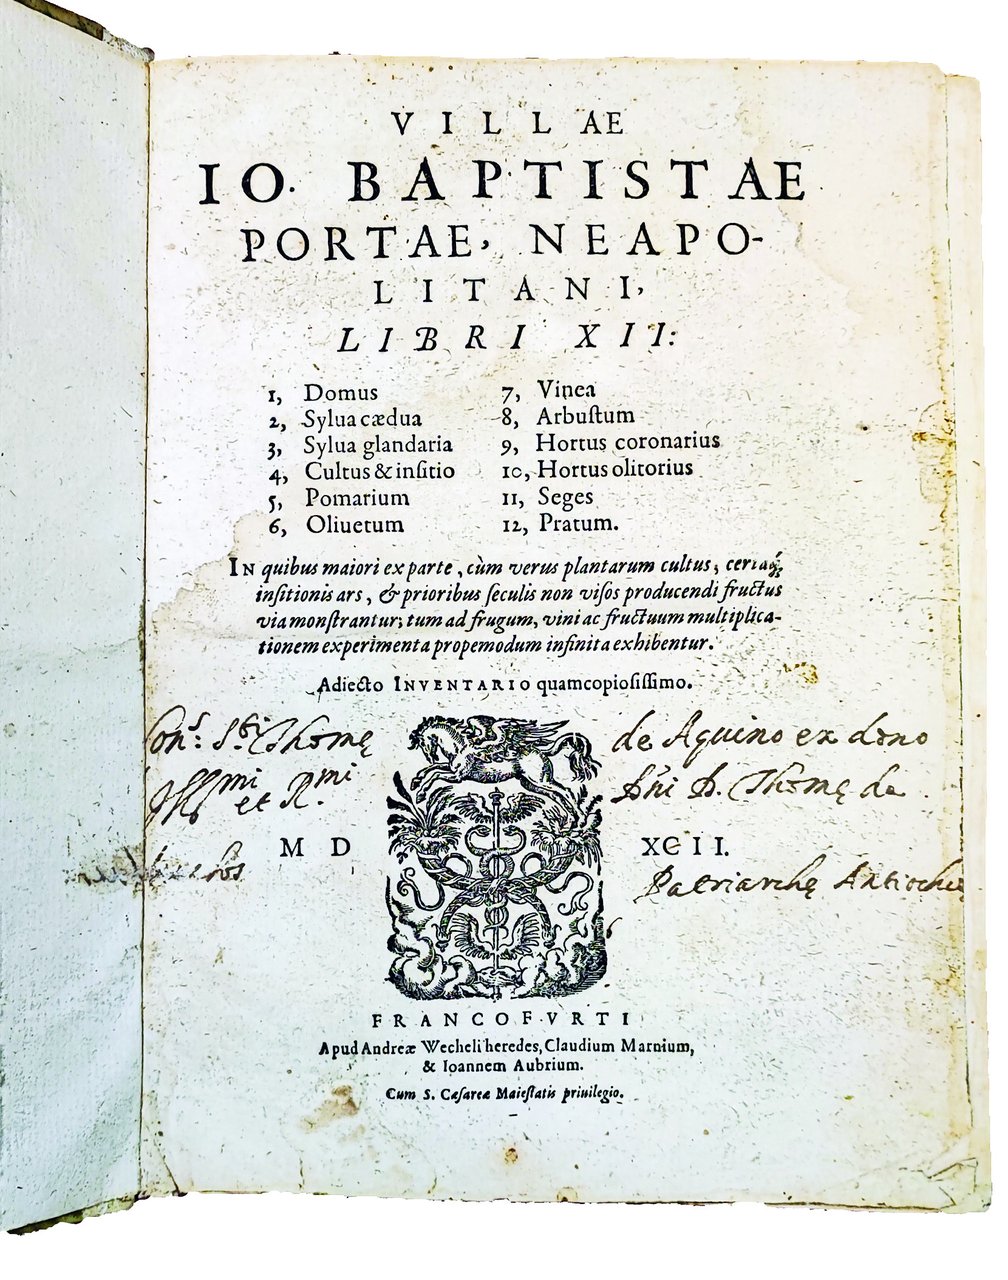 VILLAE
IO. BAPTISTAE
PORTAE, NEAPO-
LITANI,
LIBRI XII:
1, Domus
2, Sylua cædua
3, Sylua glandaria
4, Cultus & inſitio
5, Pomarium
6, Oliuetum
7, Vinea
8, Arbuſtum
9, Hortus coronarius
10, Hortus olitorius
11, Seges
12, Pratum.
IN quibus maiori ex parte, cùm verus plantarum cultus, certaq́;
inſitionis ars, & prioribus ſeculis non viſos producendi fructus
via monſtrantur; tum ad frugum, vini ac fructuum multiplica-
tionem experimenta propemodum infinita exhibentur.
Adiecto INVENTARIO quamcopioſiſſimo.
Conᵗ: Sᵗⁱ Thomę de Aquino ex dono
Illᵐⁱ et Rᵐⁱ Dñi D. Thomę de
MD XCII.
Patriarchę Antioche
FRANCOFVRTI
Apud Andreæ Wecheli heredes, Claudium Marnium,
& Ioannem Aubrium.
Cum S. Cæſareæ Maieſtatis priuilegio.